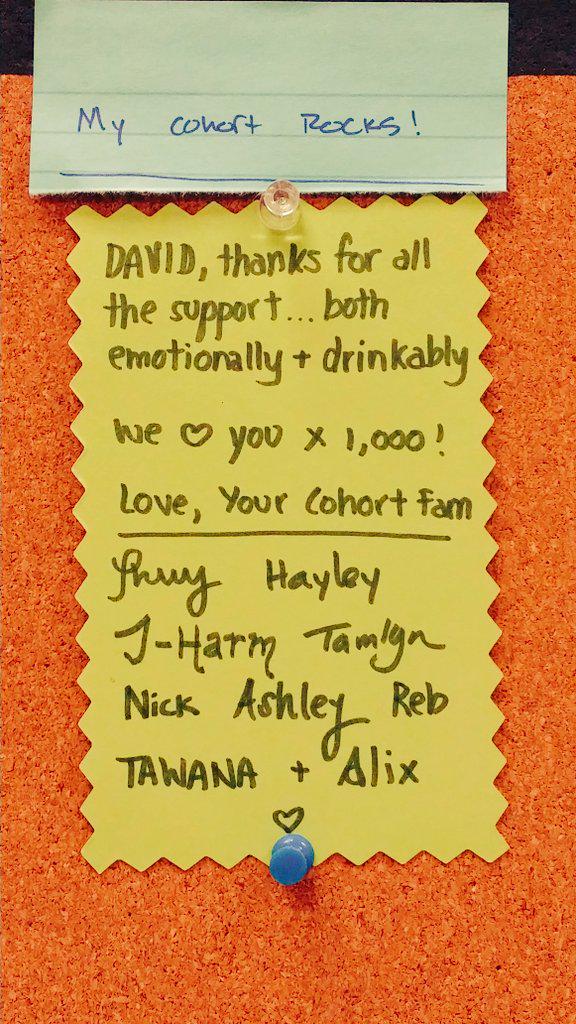 My cohort ROCKS!
DAVID, thanks for all
the support... both
emotionally + drinkably
We ♡ you x 1,000!
Love, Your Cohort Fam
Hayley
J-Harm Tamlyn
Nick Ashley Reb
TAWANA + Alix
♡